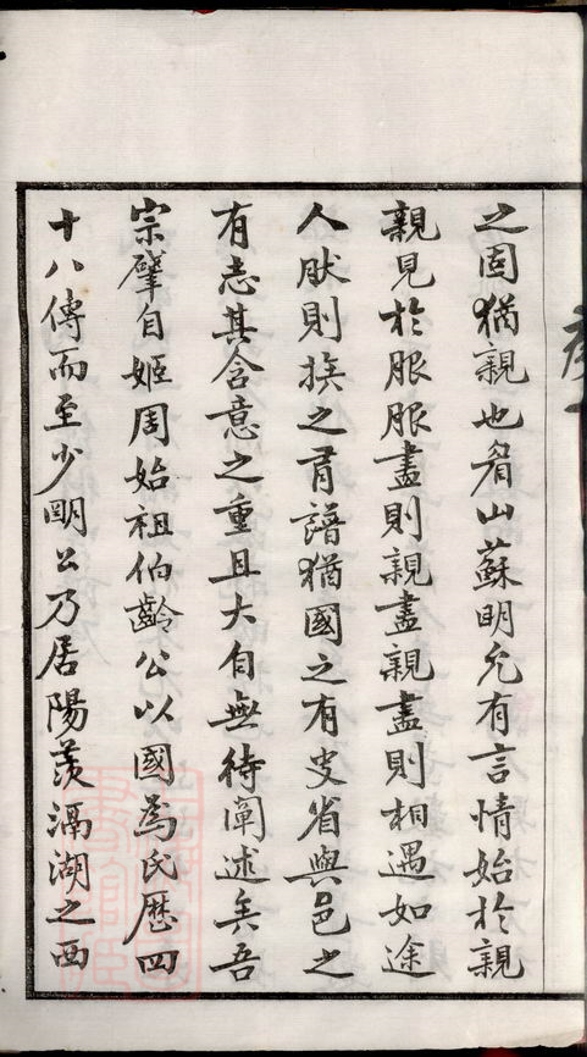 之固猶親也眉山蘇明允有言情始於親
親見於服服盡則親盡親盡則相遇如途
人肰則族之有譜猶國之有史省與邑之
有志其含意之重且大自無待闡述矣吾
宗肇自姬周始祖伯齡公以國爲氏歷四
十八傳而至少朙公乃居陽羨滆湖之西